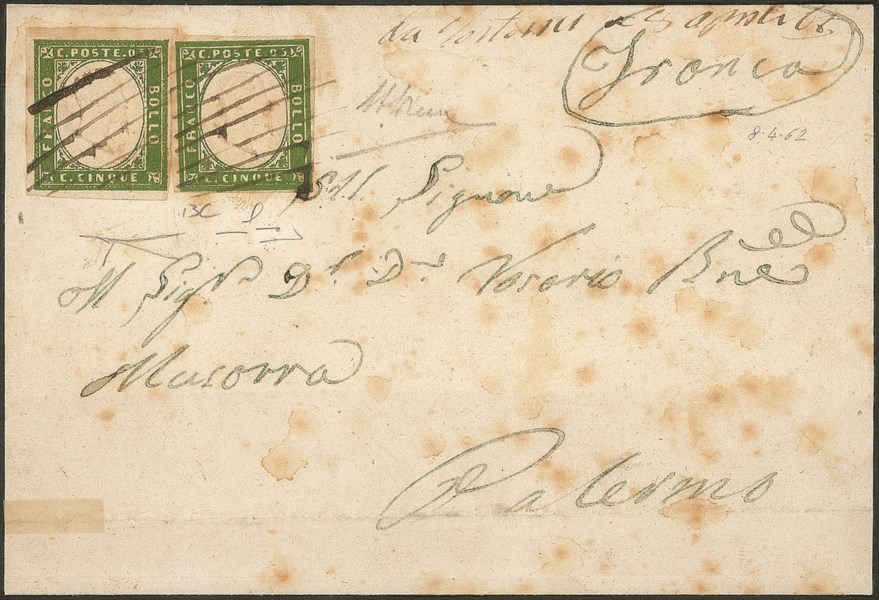 C. POSTE. 05.
FRANCO
BOLLO
C. CINQUE
C. POSTE. 05.
FRANCO
BOLLO
C. CINQUE
da
8 aprile 62
Franca
8.4.62
All Signore
Al Sigr Dr Dn Rosario Bne
Musorra
Palermo